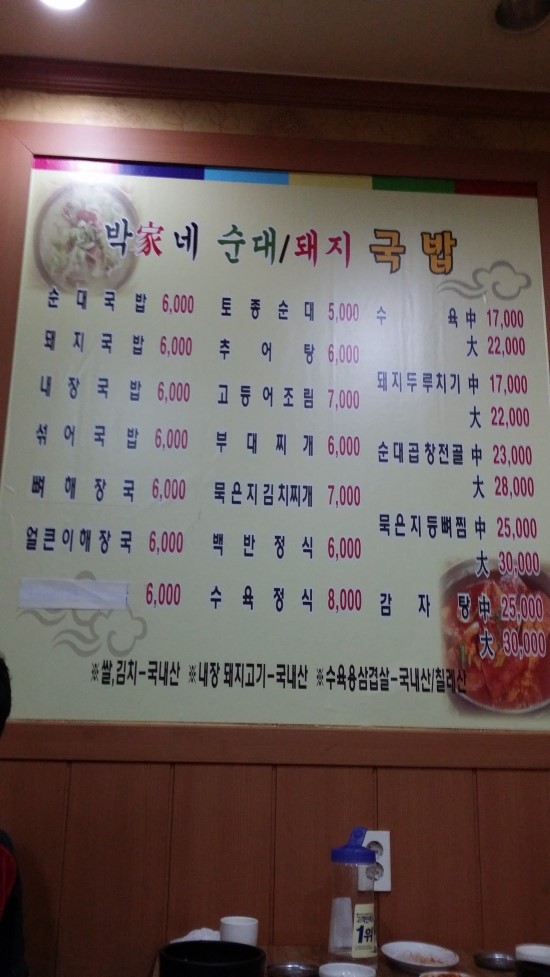 박家네 순대/돼지 국밥
순대국밥 6,000
돼지국밥 6,000
내장국밥 6,000
섞어국밥 6,000
뼈해장국 6,000
얼큰이해장국 6,000
6,000
토종순대 5,000
추어탕 6,000
고등어조림 7,000
부대찌개 6,000
묵은지김치찌개 7,000
백반정식 6,000
수육정식 8,000
수육 中 17,000
大 22,000
돼지두루치기 中 17,000
大 22,000
순대곱창전골 中 23,000
大 28,000
묵은지등뼈찜 中 25,000
大 30,000
감자탕 中 25,000
大 30,000
※쌀,김치-국내산 ※내장 돼지고기-국내산 ※수육용삼겹살-국내산/칠레산
1위